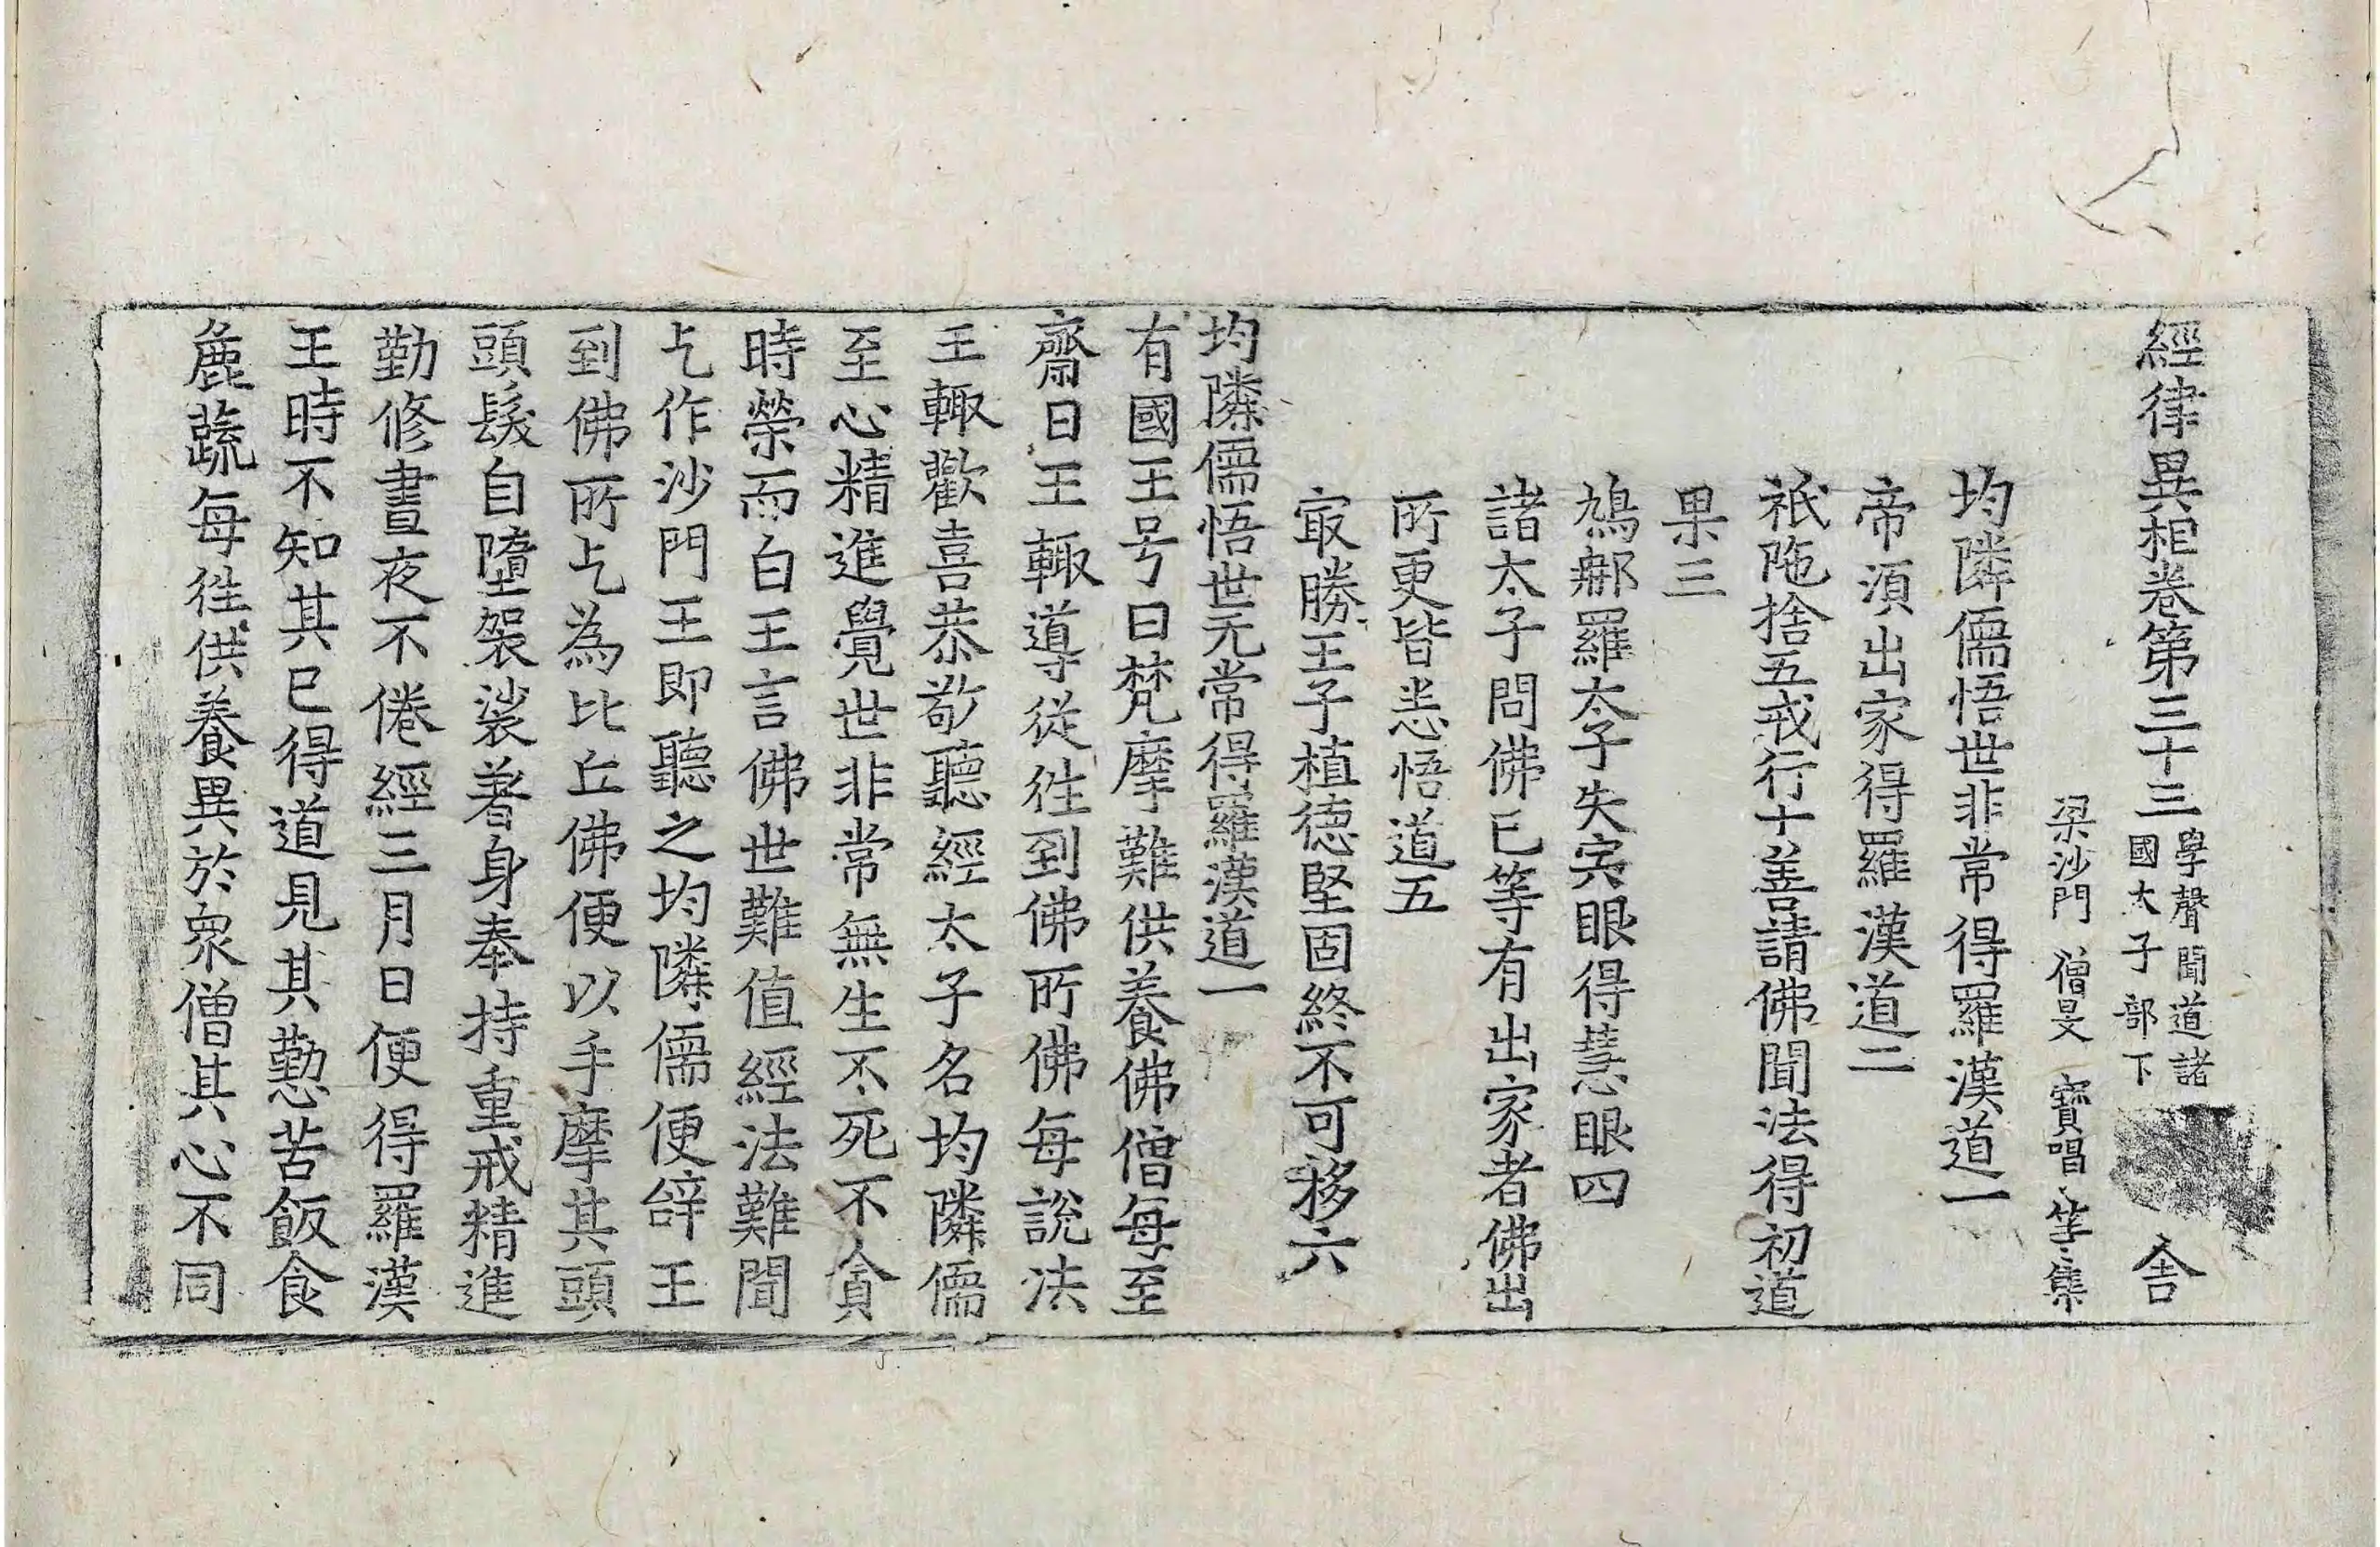 經律異相卷第三十三 學聲聞道諸國太子部下 舍
梁沙門 僧旻 寶唱 等 集
均隣儒悟世非常得羅漢道一
帝須出家得羅漢道二
祇陁捨五戒行十善請佛聞法得初道
果三
鳩䣝羅太子失㝐眼得慧眼四
諸太子問佛已等有出家者佛出
所更皆恙悟道五
㝡勝王子植德堅固終不可移六
均隣儒悟世无常得羅漢道一
有國王号曰梵摩難供養佛僧每至
齋日王輙導從徃到佛所佛每說法
王輙歡喜恭敬聽經太子名均隣儒
至心精進覺世非常無生不死不貪
時榮而白王言佛世難值經法難聞
乞作沙門王即聽之均隣儒便辝王
到佛所乞為比丘佛便以手摩其頭
頭髮自墮袈裟著身奉持重戒精進
勤修晝夜不倦經三月日便得羅漢
王時不知其已得道見其懃苦飯食
麁蔬每徃供養異於衆僧其心不同